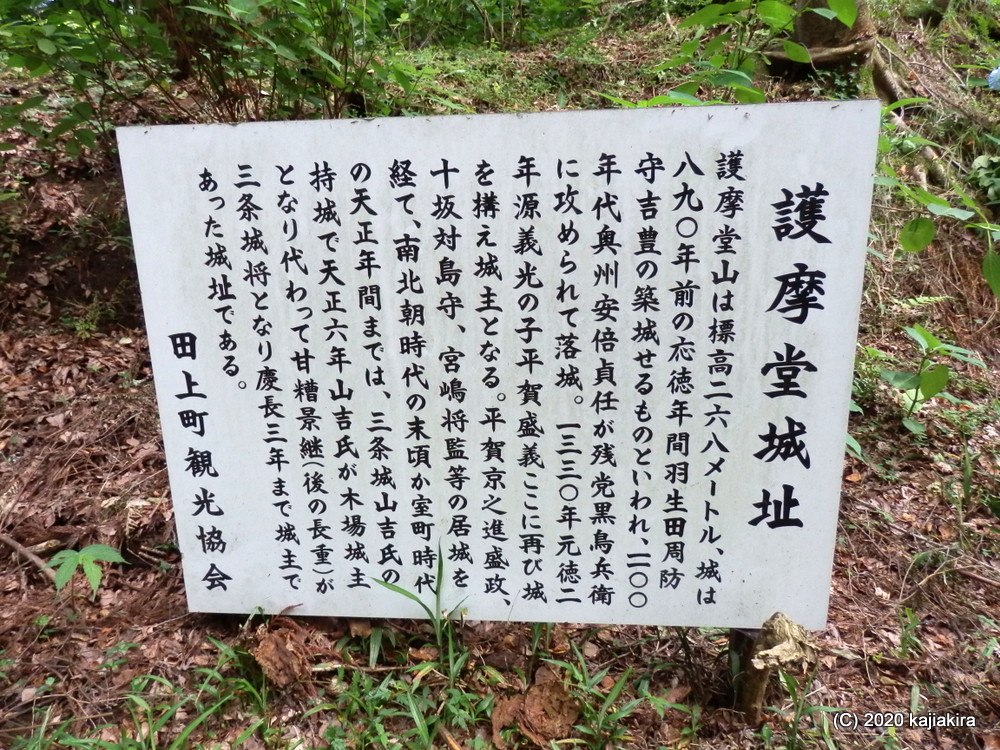 護摩堂城址
護摩堂山は標高二六八メートル、城は
八九〇年前の応徳年間羽生田周防
守吉豊の築城せるものといわれ、一一〇〇
年代奥州安倍貞任が残党黒鳥兵衛
に攻められて落城。一三三〇年元徳二
年源義光の子平賀盛義ここに再び城
を構え城主となる。平賀京之進盛政、
十坂対島守、宮嶋将監等の居城を
経て、南北朝時代の末頃か室町時代
の天正年間までは、三条城山吉氏の
持城で天正六年山吉氏が木場城主
となり代わって甘糟景継(後の長重)が
三条城将となり慶長三年まで城主で
あった城址である。
田上町観光協会
(C) 2020 kajiakira